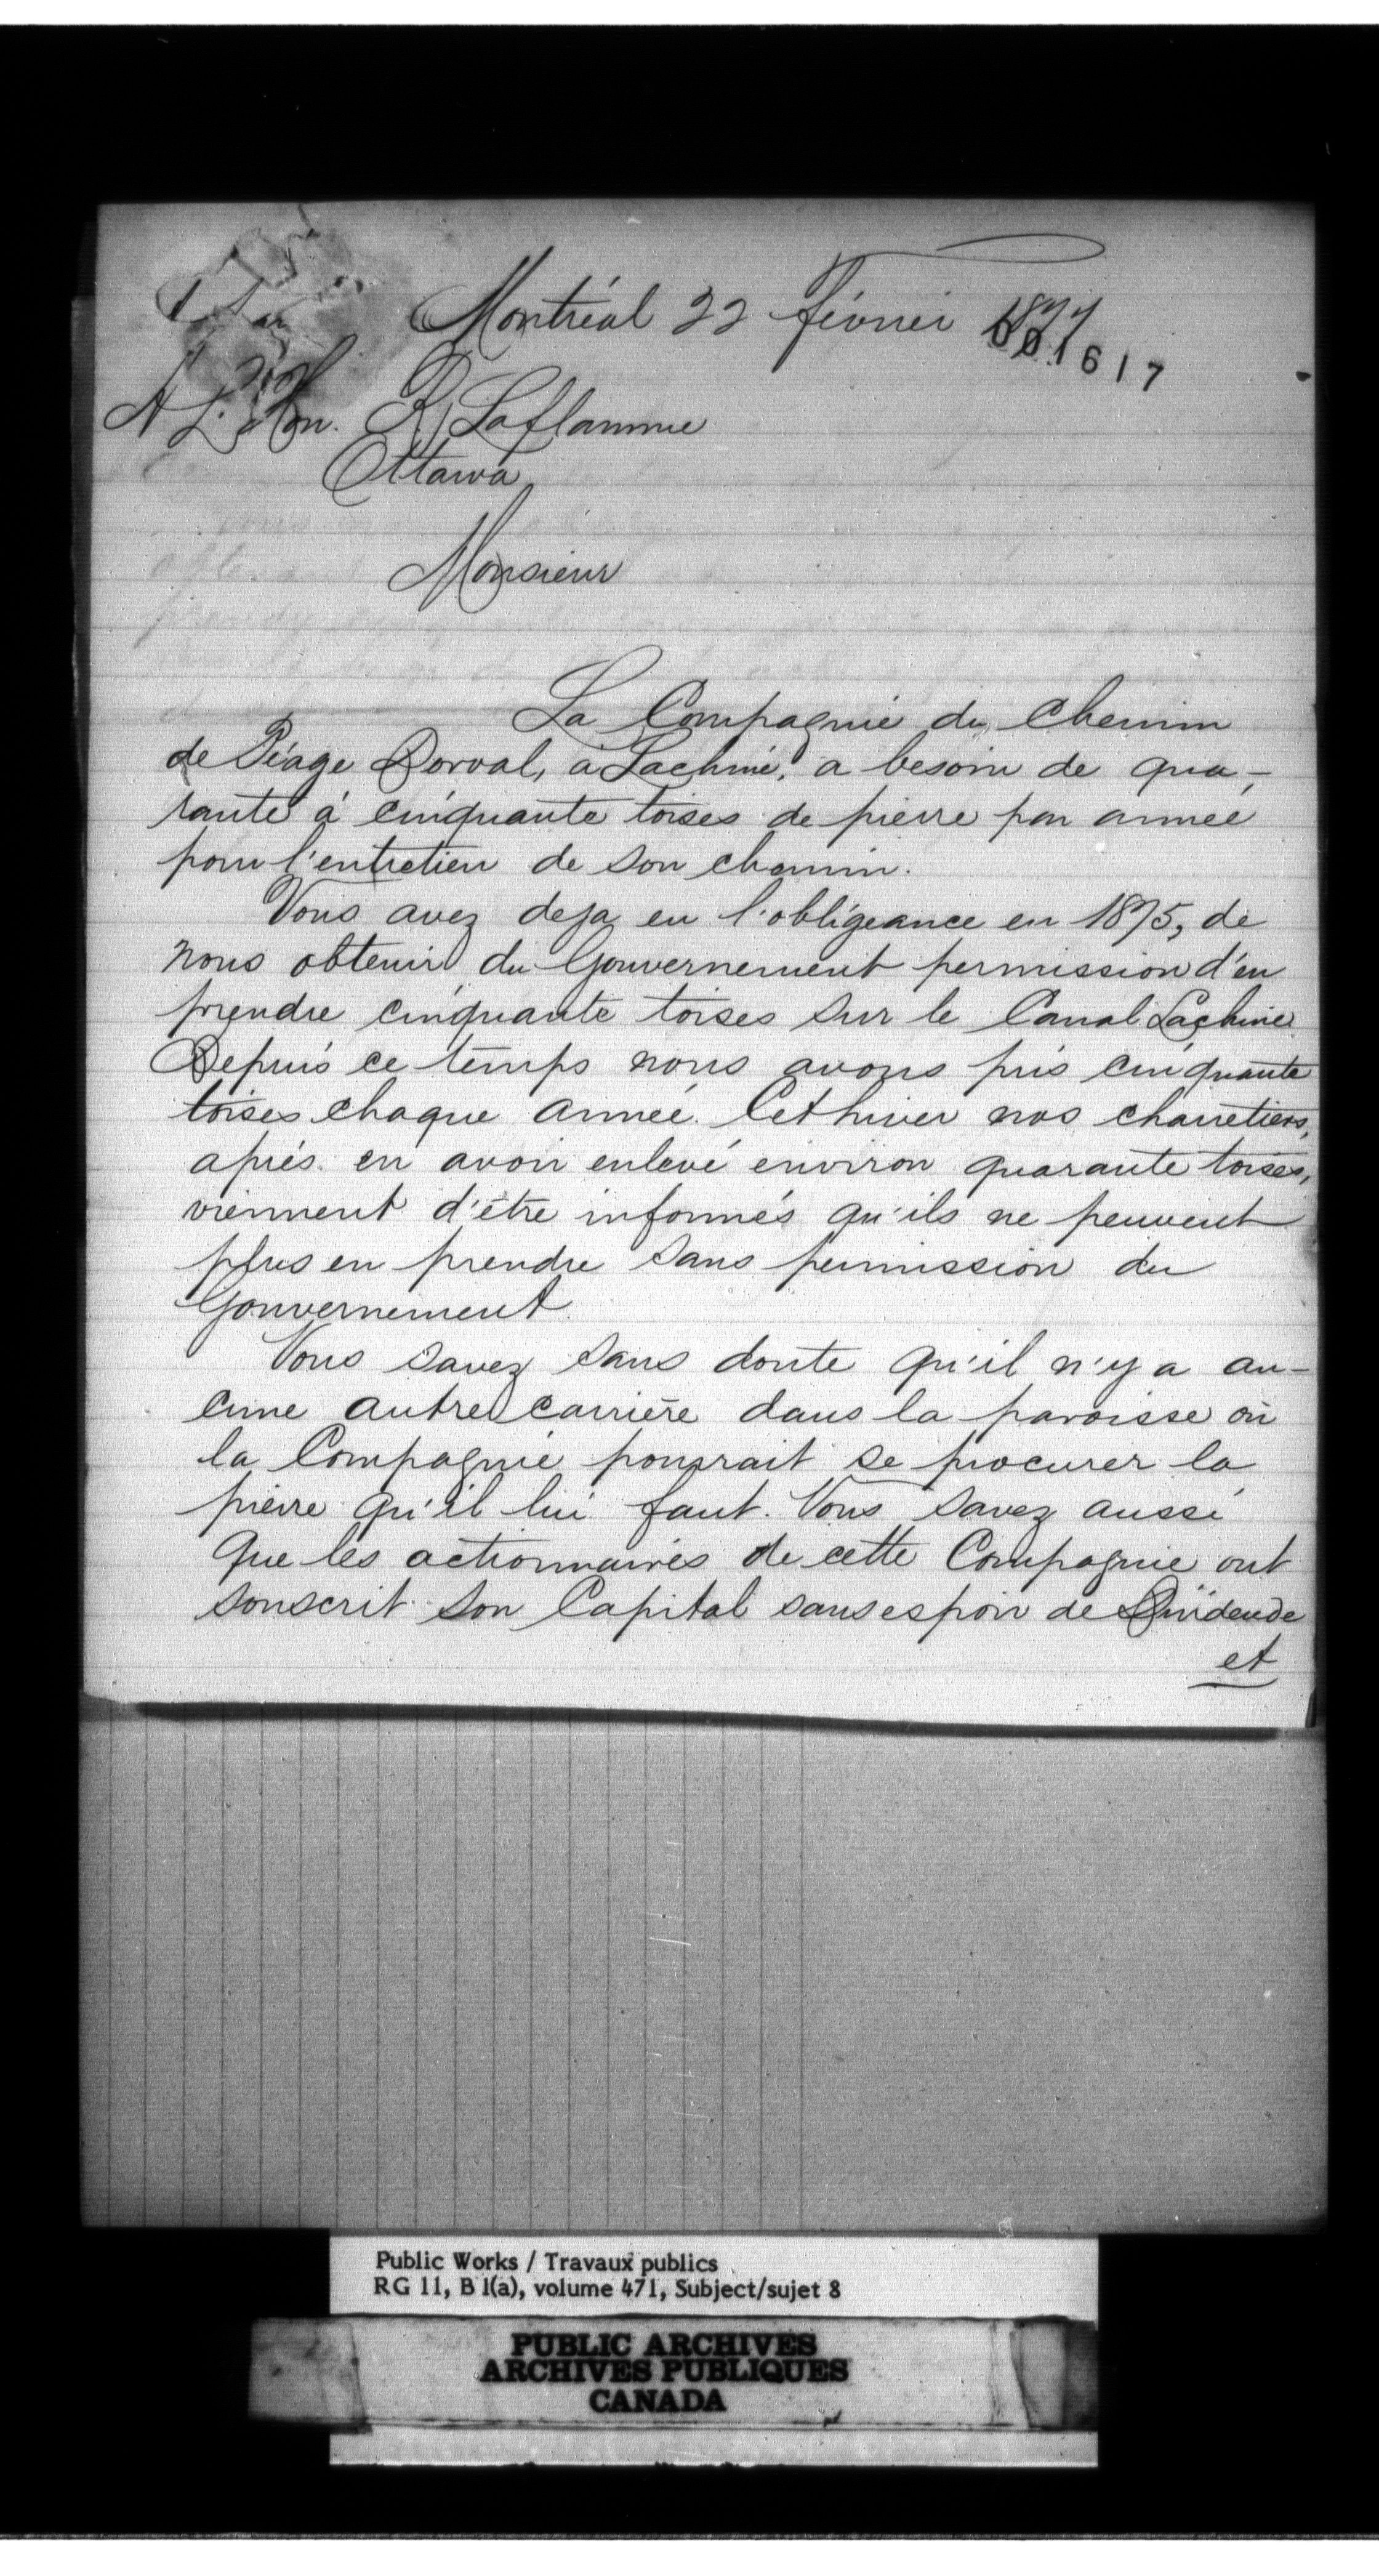 Montréal 22 février 1877
001617
A L'Hon. R. Laflamme
Ottawa
Monsieur
La Compagnie du Chemin
de Péage Dorval, à Lachine, a besoin de qua-
rante à cinquante toises de pierre par année
pour l'entretien de son chemin.
Vous avez deja eu l'obligeance en 1875, de
nous obtenir du Gouvernement permission d'en
prendre cinquante toises sur le Canal Lachine
Depuis ce temps nous avons pris cinquante
toises chaque année. Cet hiver nos charretiers,
après en avoir enlevé environ quarante toises,
viennent d'être informés qu'ils ne peuvent
plus en prendre sans permission du
Gouvernement.
Vous savez sans doute qu'il n'y a au-
cune autre carrière dans la paroisse où
la Compagnie pourrait se procurer la
pierre qu'il lui faut. Vous savez aussi
que les actionnaires de cette Compagnie ont
souscrit son Capital sans espoir de Dividende
et
Public Works / Travaux publics
RG 11, B 1(a), volume 471, Subject/sujet 8
PUBLIC ARCHIVES
ARCHIVES PUBLIQUES
CANADA